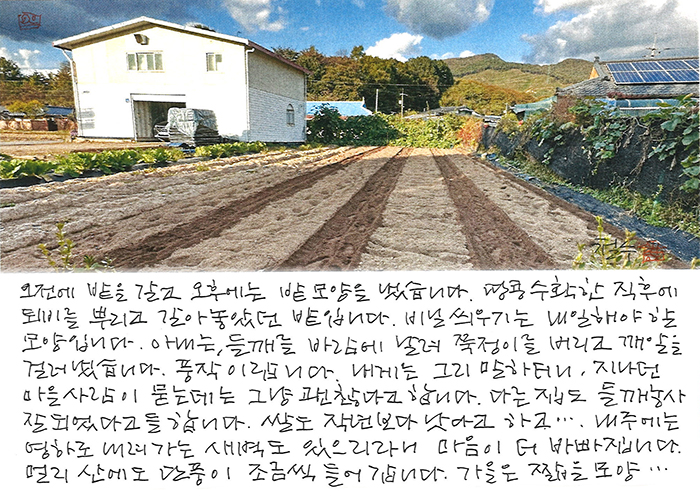 오전에 밭을 갈고 오후에는 밭 모양을 냈습니다. 땅콩 수확한 직후에
퇴비를 뿌리고 갈아놓았던 밭입니다. 비닐 씌우기는 내일해야 하는
모양입니다. 아내는, 들깨를 바람에 날려 쭉정이를 버리고 깨알을
걸러냈습니다. 풍작이랍니다. 내게는 그리 말하더니, 지나던
마을사람이 묻는데는 그냥 괜찮다고 합니다. 다른 집도 들깨농사
잘 되었다고들 합니다. 쌀도 작년보다 낫다고 하고···. 내주에는
영하로 내려가는 새벽도 있으리라니 마음이 더 바빠집니다.
멀리 산에도 단풍이 조금씩 들어갑니다. 가을은 짧을 모양···